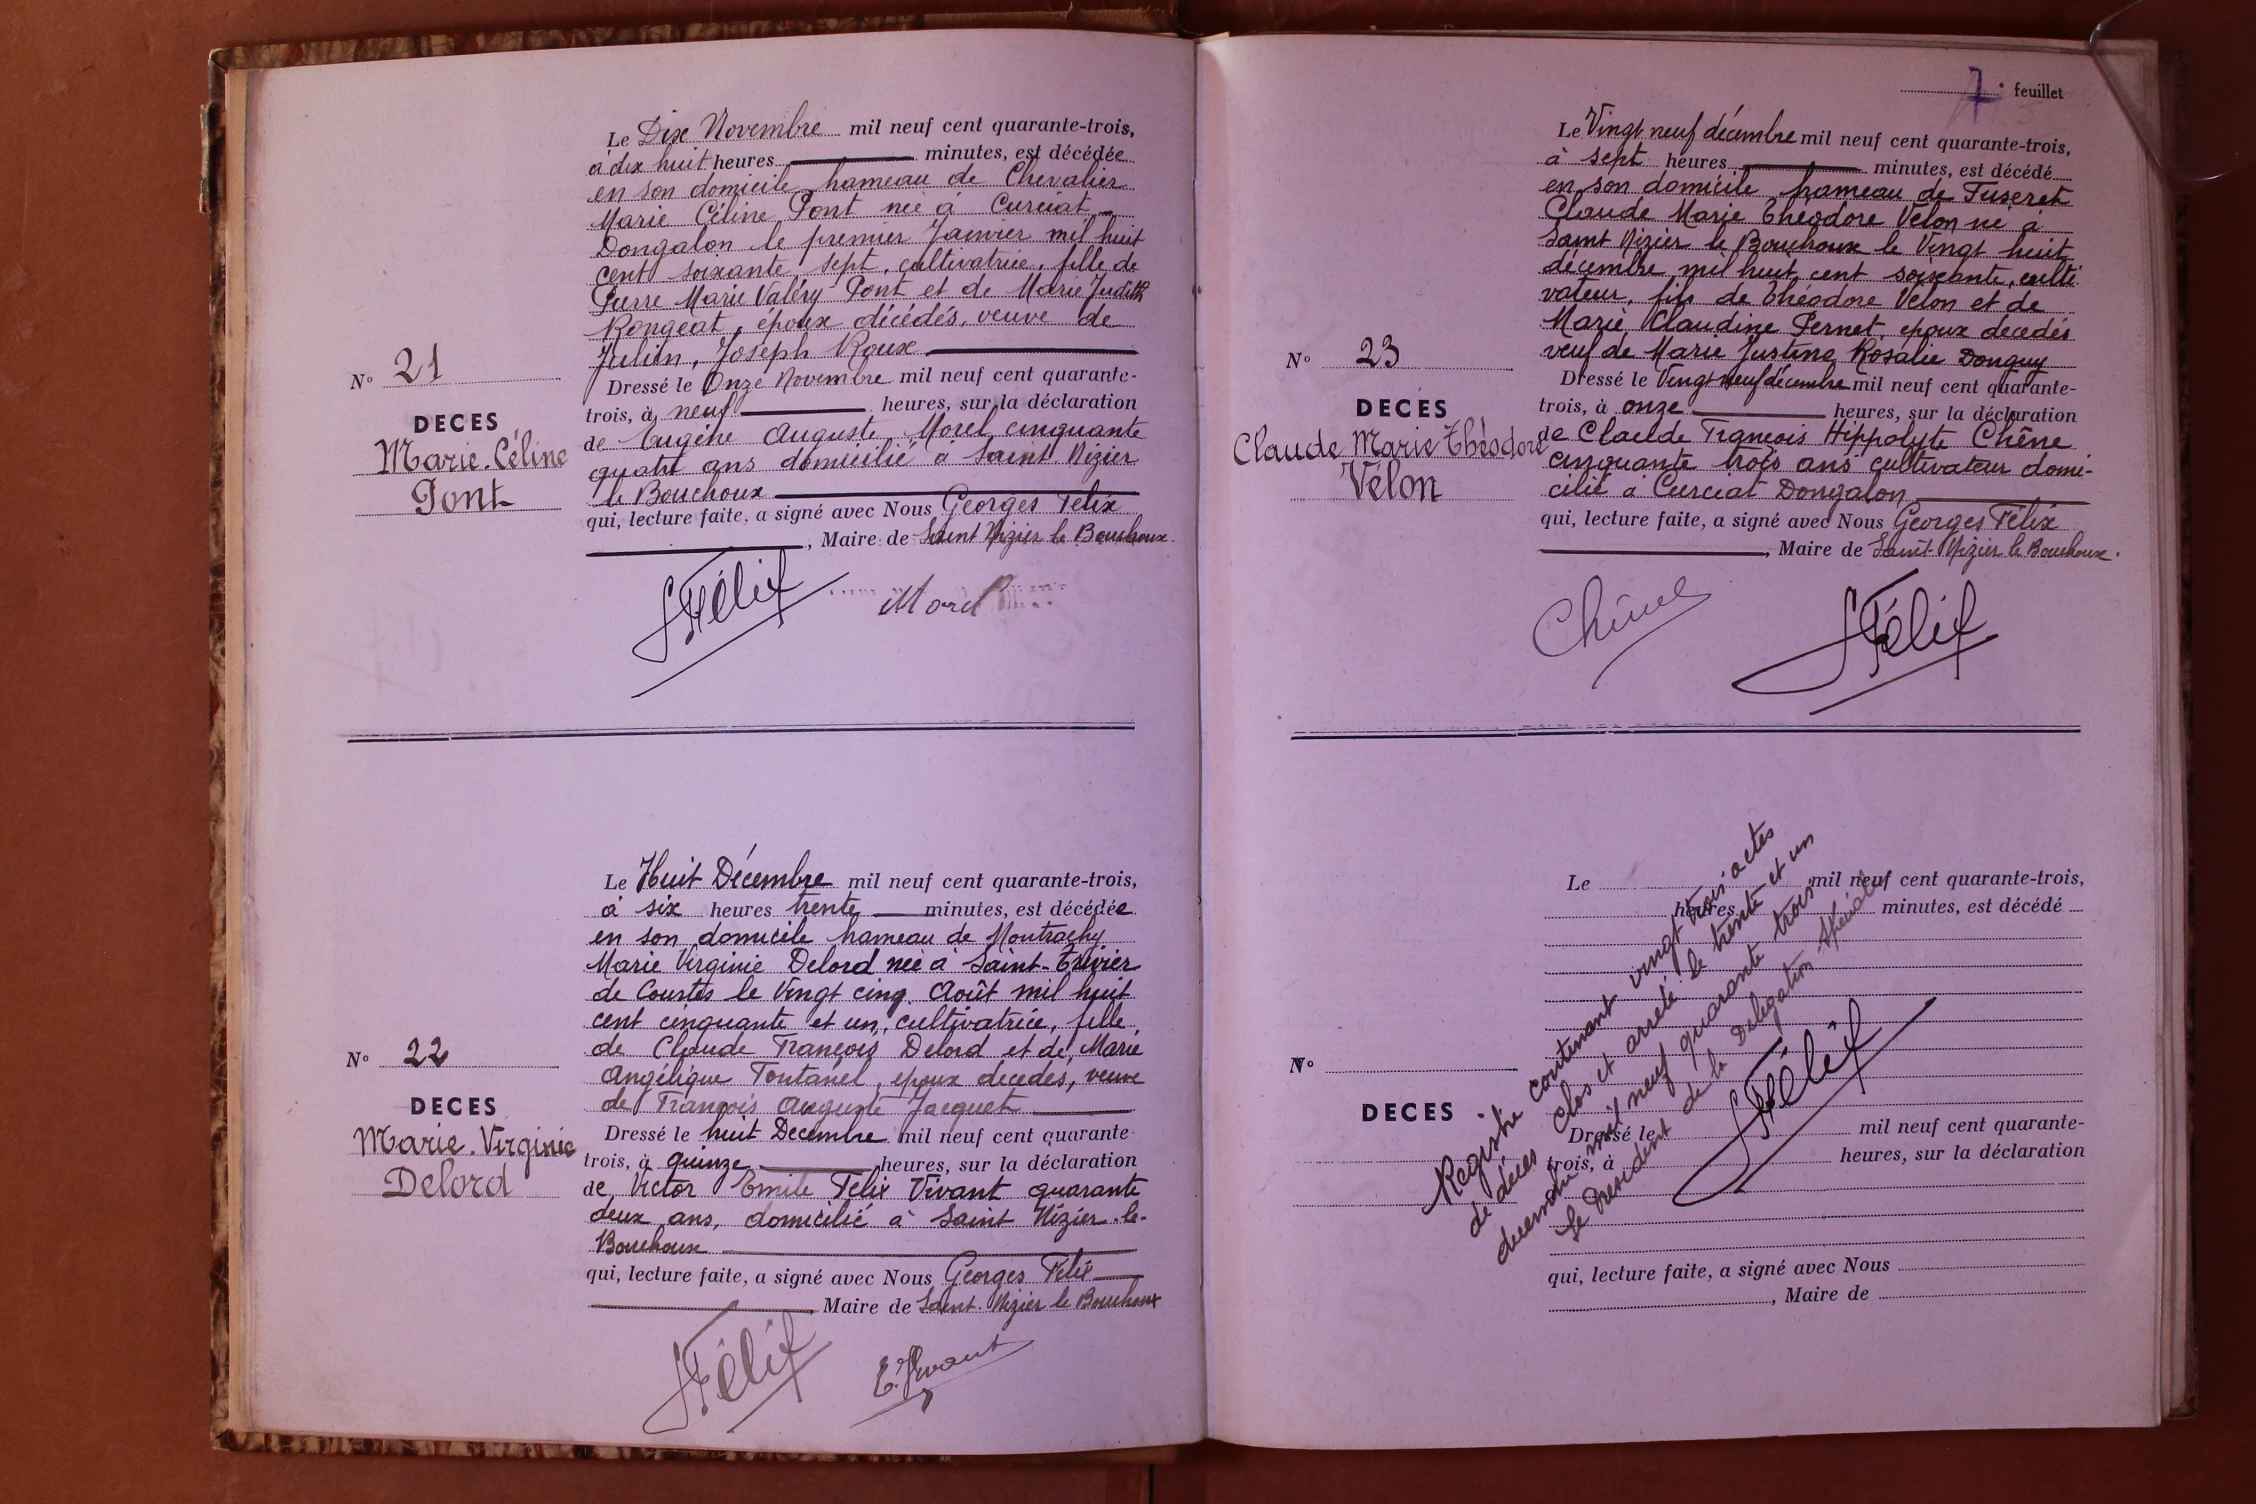 Le Dix Novembre mil neuf cent quarante-trois,
à dix huit heures minutes, est décédée
en son domicile hameau de Chevalier
Marie Céline Pont née à Curciat
Dongalon le premier Janvier mil huit
cent soixante sept, cultivatrice, fille de
Pierre Marie Valéry Pont et de Marie Judith
Rongeat, époux décédés, veuve de
Julien, Joseph Roux
N° 21
DECES
Marie-Céline
Pont
Dressé le Onze Novembre mil neuf cent quarante-
trois, à neuf heures, sur la déclaration
de Eugène Auguste Morel cinquante
quatre ans domicilié à Saint Nizier
le Bouchoux
qui, lecture faite, a signé avec Nous Georges Félix
, Maire de Saint Nizier le Bouchoux
GFélix
Morel
Le Huit Décembre mil neuf cent quarante-trois,
à six heures trente minutes, est décédée
en son domicile hameau de Montrachy
Marie Virginie Delord née à Saint-Trivier
de Courtes le Vingt cinq Août mil huit
cent cinquante et un, cultivatrice, fille
de Claude François Delord et de Marie
Angélique Fontanel, époux décédés, veuve
de François Auguste Jacquet
N° 22
DECES
Marie-Virginie
Delord
Dressé le huit Décembre mil neuf cent quarante-
trois, à quinze heures, sur la déclaration
de Victor Emile Felix Vivant quarante
deux ans, domicilié à Saint Nizier-le-
Bouchoux
qui, lecture faite, a signé avec Nous Georges Félix
Maire de Saint-Nizier le Bouchoux
GFélix
E. Vivant
7e feuillet
Le Vingt neuf décembre mil neuf cent quarante-trois,
à sept heures minutes, est décédé
en son domicile hameau de Fuseret
Claude Marie Théodore Vélon né à
Saint Nizier le Bouchoux le Vingt huit
décembre mil huit cent soixante, culti-
vateur, fils de Théodore Vélon et de
Marie Claudine Pernet, époux décédés
veuf de Marie Justine Rosalie Donguy
N° 23
DECES
Claude Marie Théodore
Vélon
Dressé le Vingt neuf décembre mil neuf cent quarante-
trois, à onze heures, sur la déclaration
de Claude François Hippolyte Chêne
cinquante trois ans cultivateur domi-
cilié à Curciat Dongalon
qui, lecture faite, a signé avec Nous Georges Félix
, Maire de Saint-Nizier le Bouchoux.
Chêne
GFélix
Le mil neuf cent quarante-trois,
heures minutes, est décédé
N°
DECES
Dressé le mil neuf cent quarante-
trois, à heures, sur la déclaration
qui, lecture faite, a signé avec Nous
, Maire de
Registre contenant vingt trois actes
de décès clos et arrêté le trente et un
décembre mil neuf quarante trois
Le Président de la Délégation Spéciale
GFélix